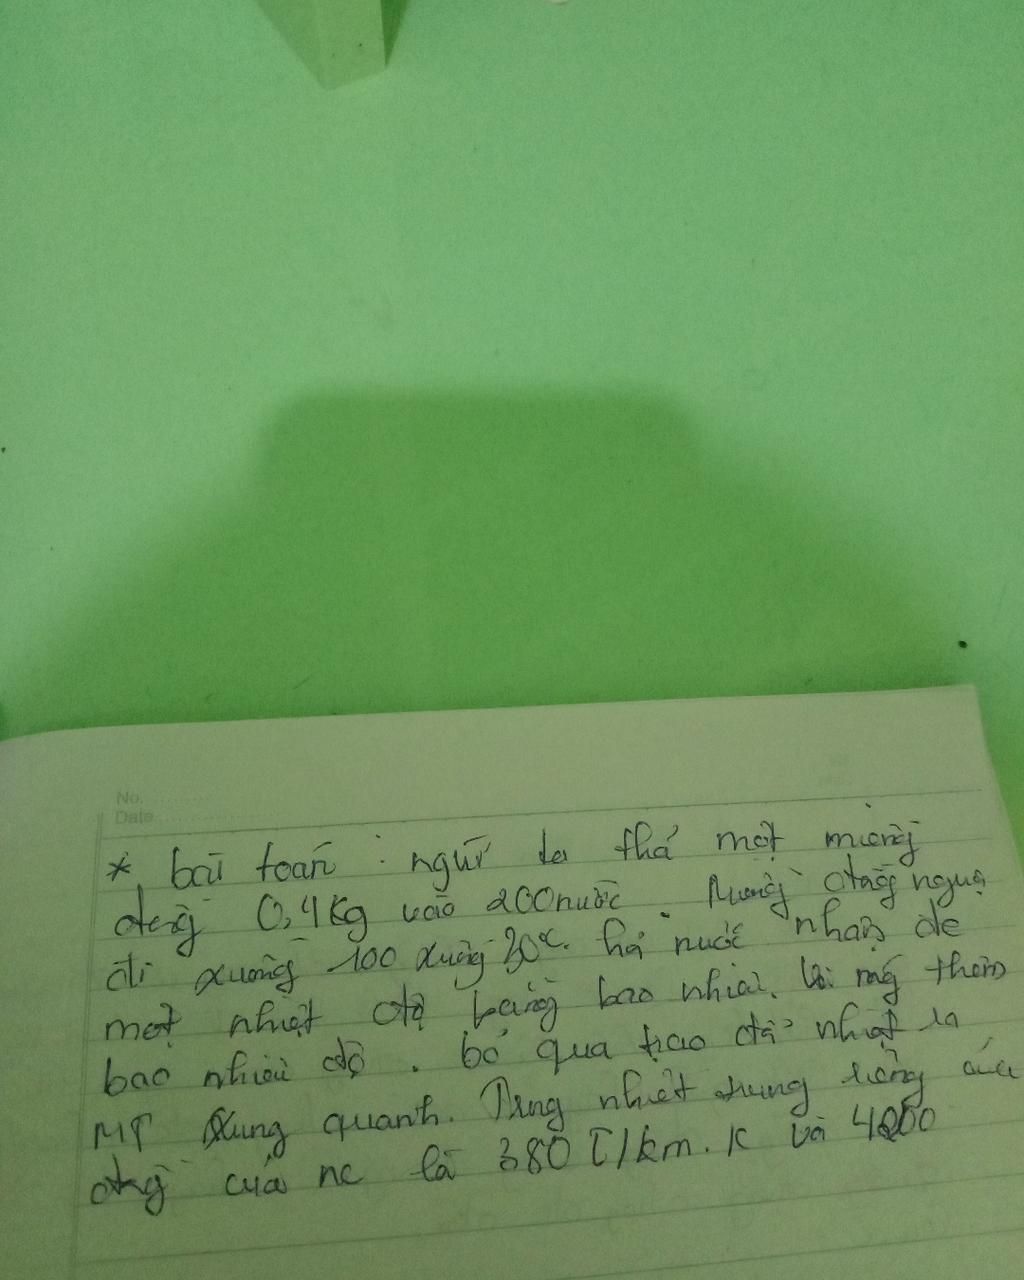 No.
Date
* bài toán : người ta thả một miếng
đồng 0,4kg vào 200 nước . Miếng đồng nguội
đi xuống 100 xuống 30°c. hỏi nước nhận đc
một nhiệt độ bằng bao nhiêu. Và nóng thêm
bao nhiêu độ . bỏ qua trao đổi nhiệt ra
MT xung quanh. nhiệt dung riêng của
đồng của nc là 380 J/km.k và 4200